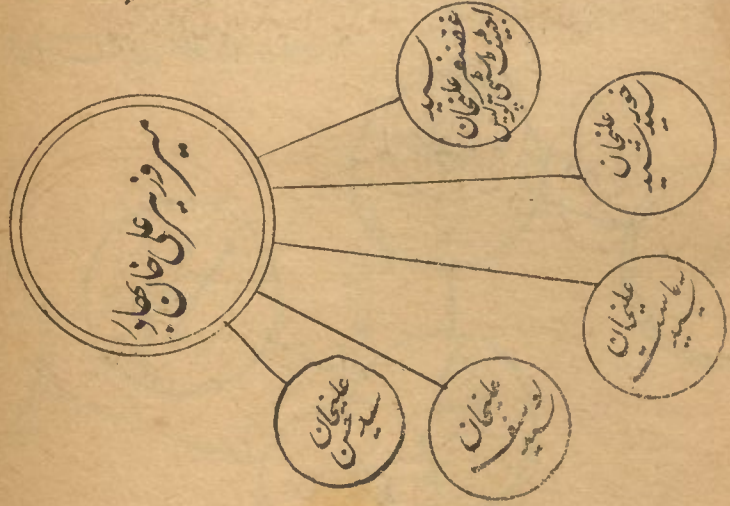 میر وزیر علی خان بہادر
سید
غضنفر علیخان
پولیس
سید خورشید
علیخان
سید
علیخان
سید یوسف
علیخان
سید حسن
علیخان